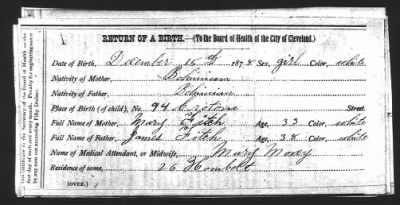 RETURN OF A BIRTH.—(To the Board of Health of the City of Cleveland.)
Date of Birth, December 15th 1878 Sex, girl Color, white
Nativity of Mother, Bohemian
Nativity of Father, Bohemian
Place of Birth (of child), No. 94 Croton Street.
Full Name of Mother Mary Fitch Age, 33 Color, white
Full Name of Father James Fitch Age, 38 Color, white
Name of Medical Attendant, or Midwife, Mary
Residence of same, 26 Humbolt
(OVER.)